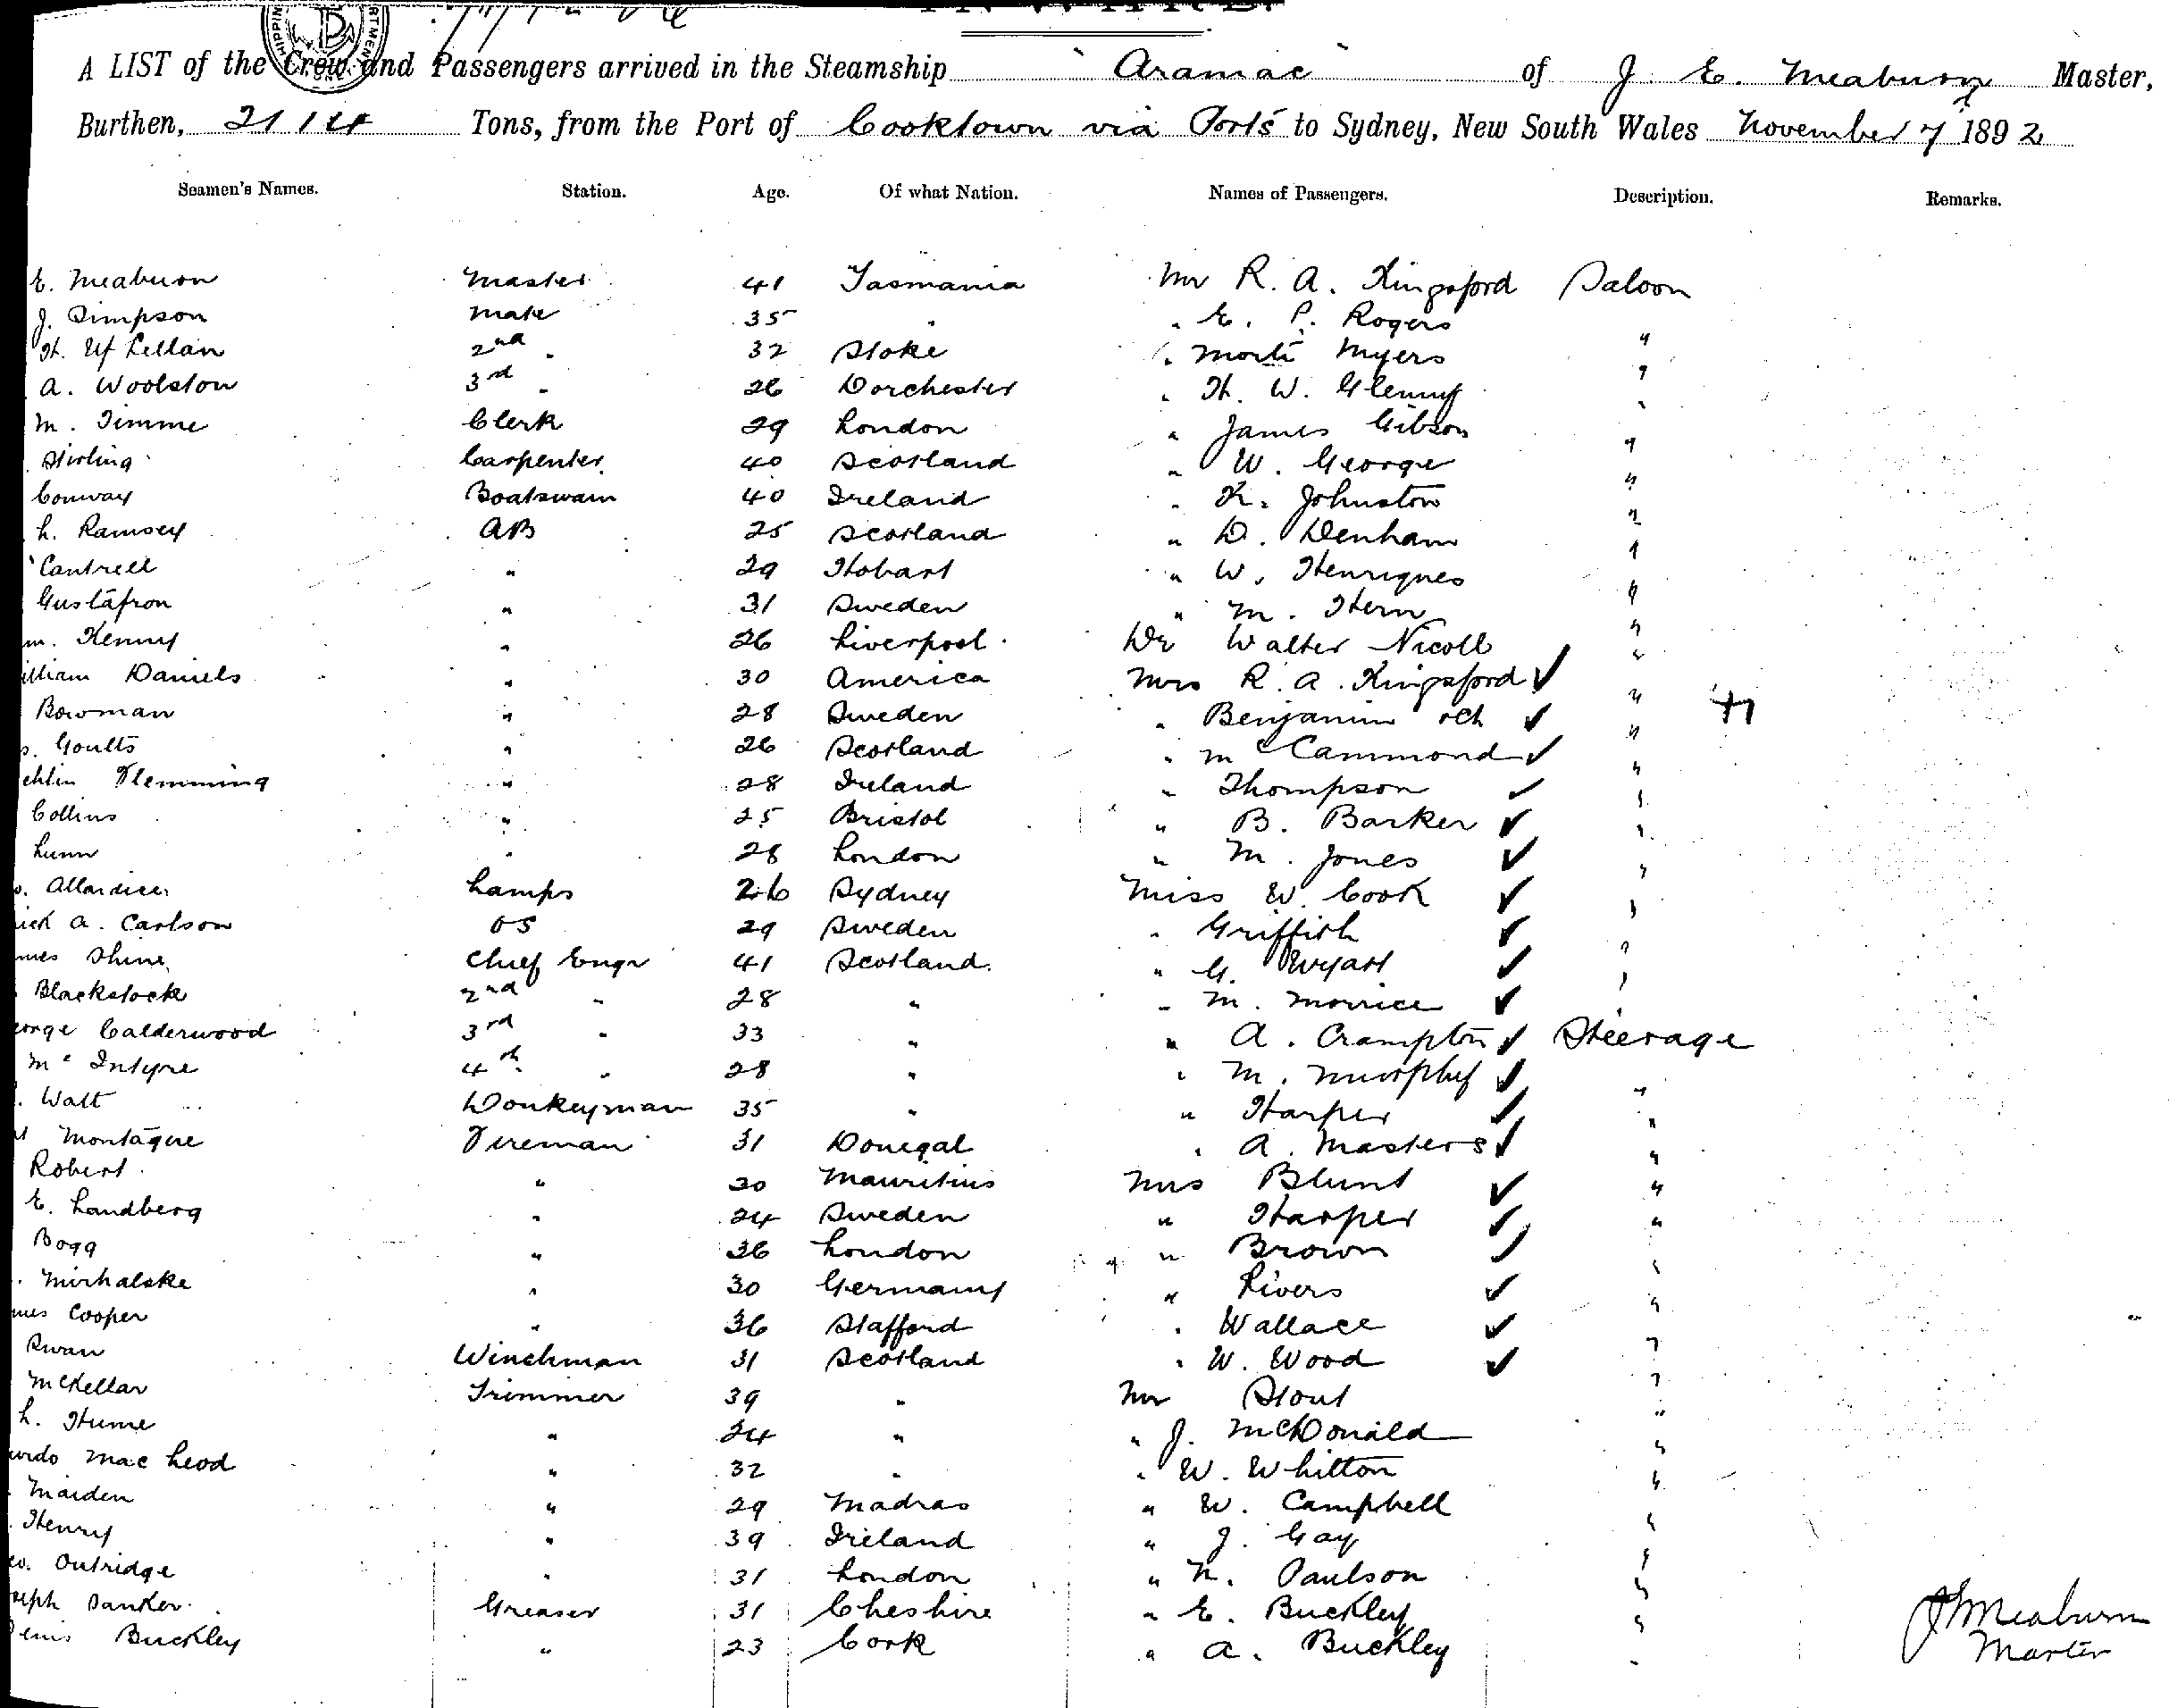 A LIST of the Crew and Passengers arrived in the Steamship "Aramac" of J. E. Meaburn Master,
Burthen, 2114 Tons, from the Port of Cooktown via Ports to Sydney, New South Wales November 7 1892
Seamen's Names. Station. Age. Of what Nation. Names of Passengers. Description. Remarks.
E. Meaburn Master 41 Tasmania Mr R. A. Kingsford Saloon
J. Simpson Mate 35 " " E. P. Rogers "
H. McLellan 2nd " 32 Stoke " Myers "
A. Woolston 3rd " 26 Dorchester " H. W. Glenny "
M. Timme Clerk 29 London " James Gibson "
Stirling Carpenter 40 Scotland " W. George "
Conway Boatswain 40 Ireland " K. Johnston "
L. Ramsey AB 25 Scotland " D. Denham "
Cantrell " 29 Hobart " W. Henriques "
Gustafson " 31 Sweden " M. Hern "
m. Kenny " 26 Liverpool Dr Walter Nicoll "
illiam Daniels " 30 America Mrs R. A. Kingsford ✓ "
Bowman " 28 Sweden " Benjamin ✓ "
s. Goults " 26 Scotland " McCammond ✓ "
chlin Flemming " 28 Ireland " Thompson ✓ "
Collins " 25 Bristol " B. Barker ✓ "
Lunn " 28 London " M. Jones ✓ "
Allardice Lamps 26 Sydney Miss W. Cook ✓ "
rick A. Carlson OS 29 Sweden " Griffith ✓ "
mes Shine Chief Engr 41 Scotland " G. Wyatt ✓ "
Blackstock 2nd " 28 " " M. Morrice ✓ "
eorge Calderwood 3rd " 33 " " A. Crampton ✓ Steerage
McIntyre 4th " 28 " " M. Murphy ✓ "
Watt Donkeyman 35 " " Harper ✓ "
Montague Fireman 31 Donegal " A. Masters ✓ "
Robert " 30 Mauritius Mrs Blunt ✓ "
E. Landberg " 24 Sweden " Harper ✓ "
Bogg " 36 London " Brown ✓ "
Mirhalske " 30 Germany " Rivers ✓ "
mes Cooper " 36 Stafford " Wallace ✓ "
Swan Winchman 31 Scotland " W. Wood ✓ "
McKellar Trimmer 39 " Mr Stout "
L. Hume " 24 " " J. McDonald "
urdo Mac Leod " 32 " " W. Whitton "
Maiden " 29 Madras " W. Campbell "
Henry " 39 Ireland " J. Gay "
Outridge " 31 London " N. Paulson "
oseph Danker Greaser 31 Cheshire " E. Buckley "
Denis Buckley " 23 Cork " A. Buckley "
J E Meaburn
Master